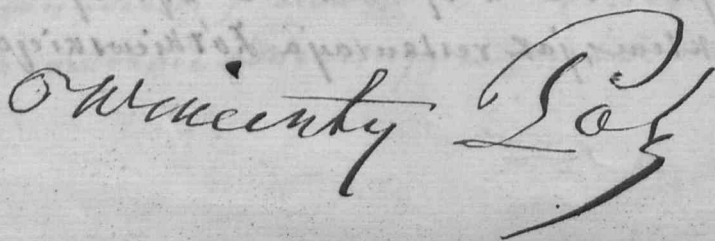 Wincenty Łoś